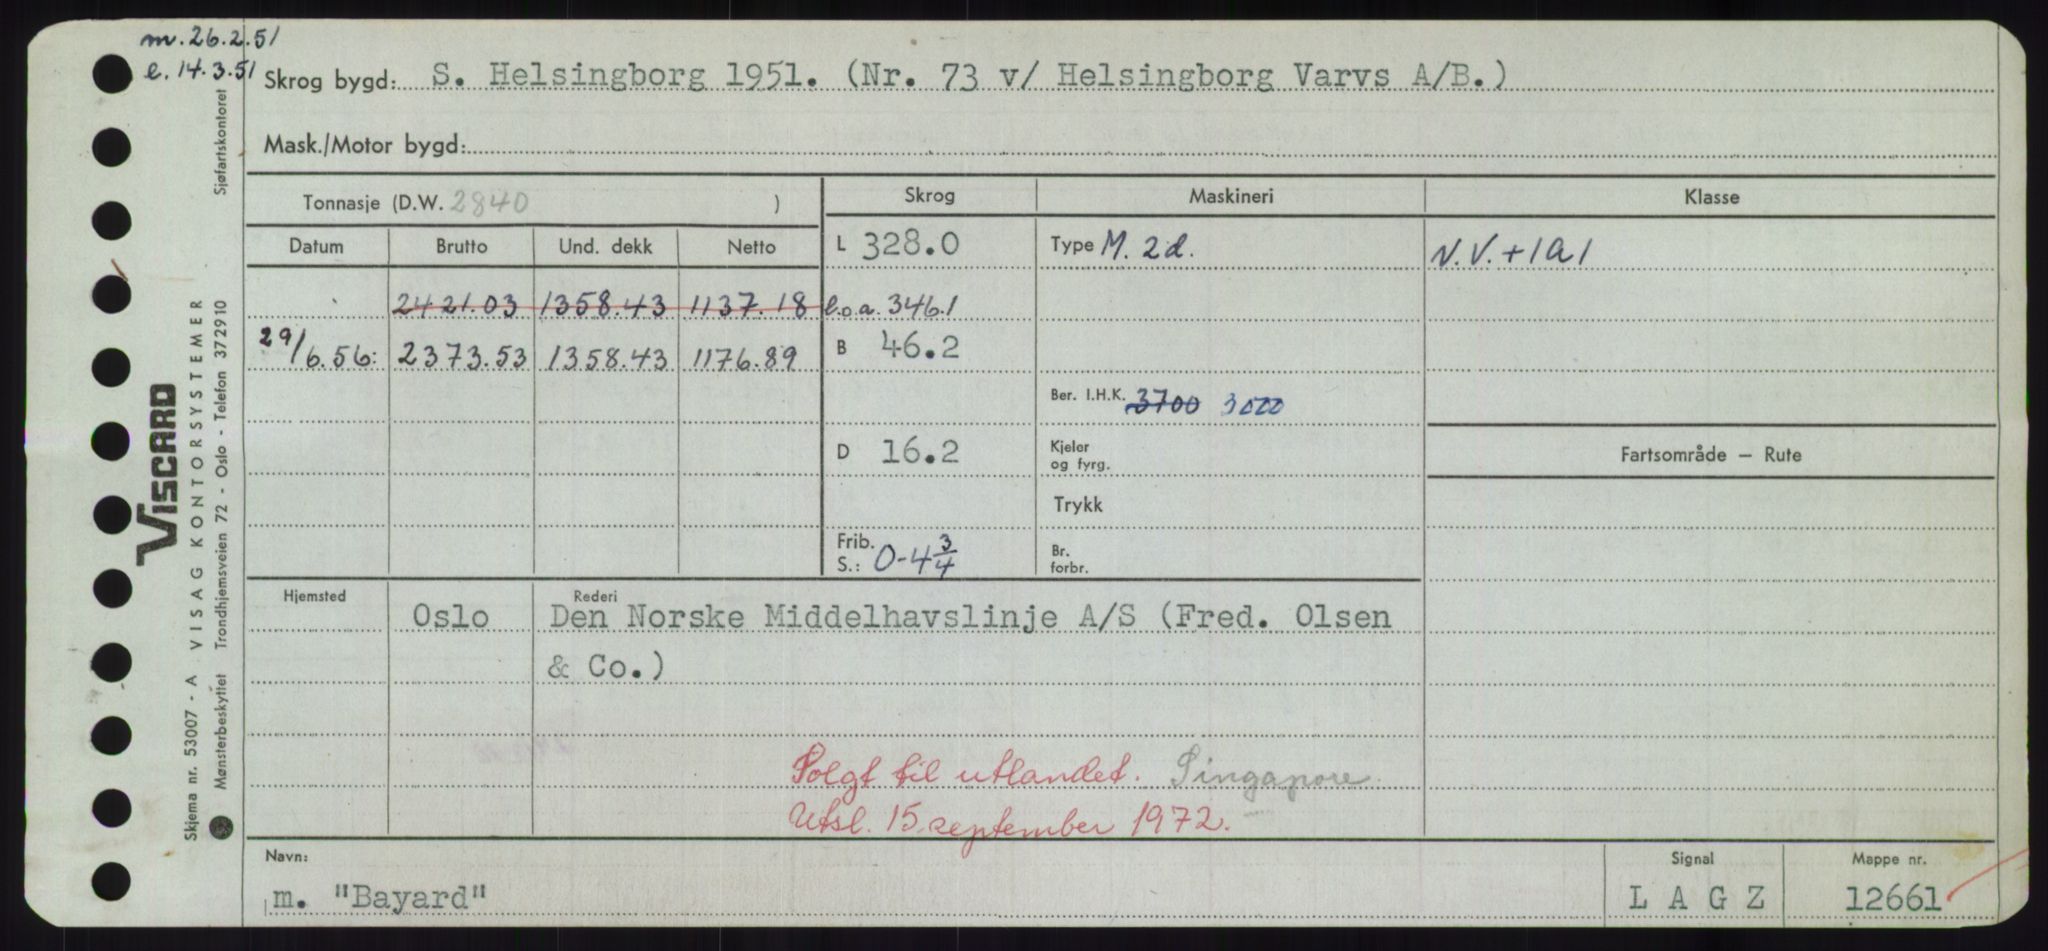 m. 26.2.51
e. 14.3.51
Skrog bygd: S. Helsingborg 1951. (Nr. 73 v/ Helsingborg Varvs A/B.)
Mask./Motor bygd:
Tonnasje (D.W. 2840 )
Skrog
Maskineri
Klasse
Datum Brutto Und. dekk Netto
L 328.0
Type M. 2 d.
N.V. + 1 A 1
2421.03 1358.43 1137.18
l.o.a. 346.1
29/6.56: 2373.53 1358.43 1176.89
B 46.2
Ber. I.H.K. 3700 3000
D 16.2
Kjeler og fyrg.
Fartsområde — Rute
Trykk
Frib. S.: 0-4 3/4
Br. forbr.
Hjemsted
Rederi
Oslo Den Norske Middelhavslinje A/S (Fred. Olsen
& Co.)
Solgt til utlandet. Singapore.
Utsl. 15. september 1972.
Navn:
Signal
Mappe nr.
m. "Bayard"
L A G Z
12661
VISCARD
Skjema nr. 53007 - A VISAG KONTORSYSTEMER
Mønsterbeskyttet Trondhjemsveien 72 - Oslo - Telefon 372910 Sjøfartskontoret